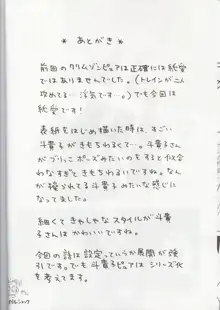 * あとがき *
前回のクリムゾンピュアは正確には純愛
ではありませんでした。(トレインが二人
攻めてる…浮気です…。)でも今回は
純愛です!
表紙をはじめ描いた時は、すごい
斗貴子がきもちわるくて…。斗貴子さん
がプリッこポーズみたいのをすると似合
わなすぎてきもちわるいですね。な
んか操られてる斗貴子みたいな感じに
なってました。
細くてきゃしゃなスタイルが斗貴
子さんはかわいいですよね。
今回の話は設定っていうか展開が強
引です。でも斗貴子ピュアはシリーズ化
を考えてます。